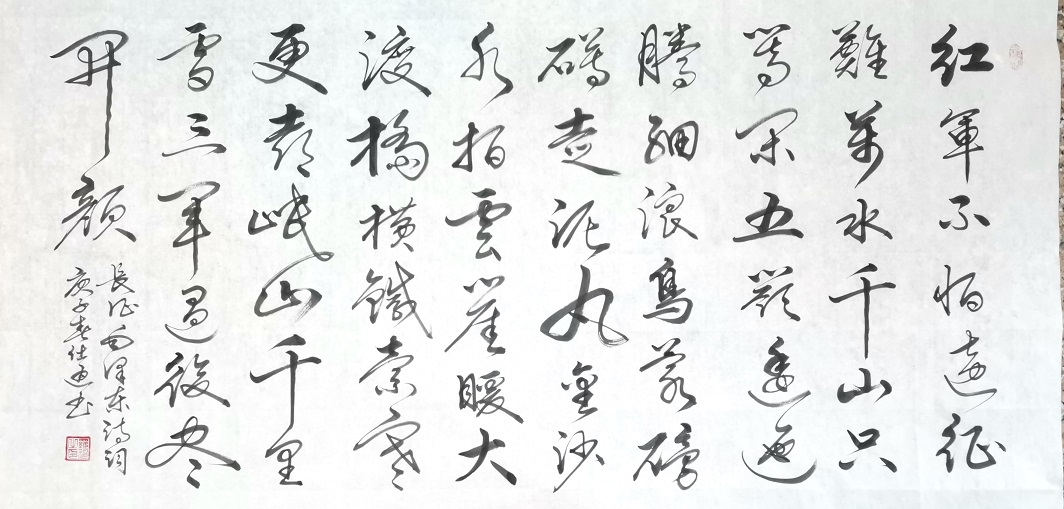 紅軍不怕遠征
難萬水千山只
等閑五嶺逶迤
騰細浪烏蒙磅
礴走泥丸金沙
水拍雲崖暖大
渡橋橫鐵索寒
更喜岷山千里
雪三軍過後盡
開顏
長征毛澤東詩詞
庚子春仕通书